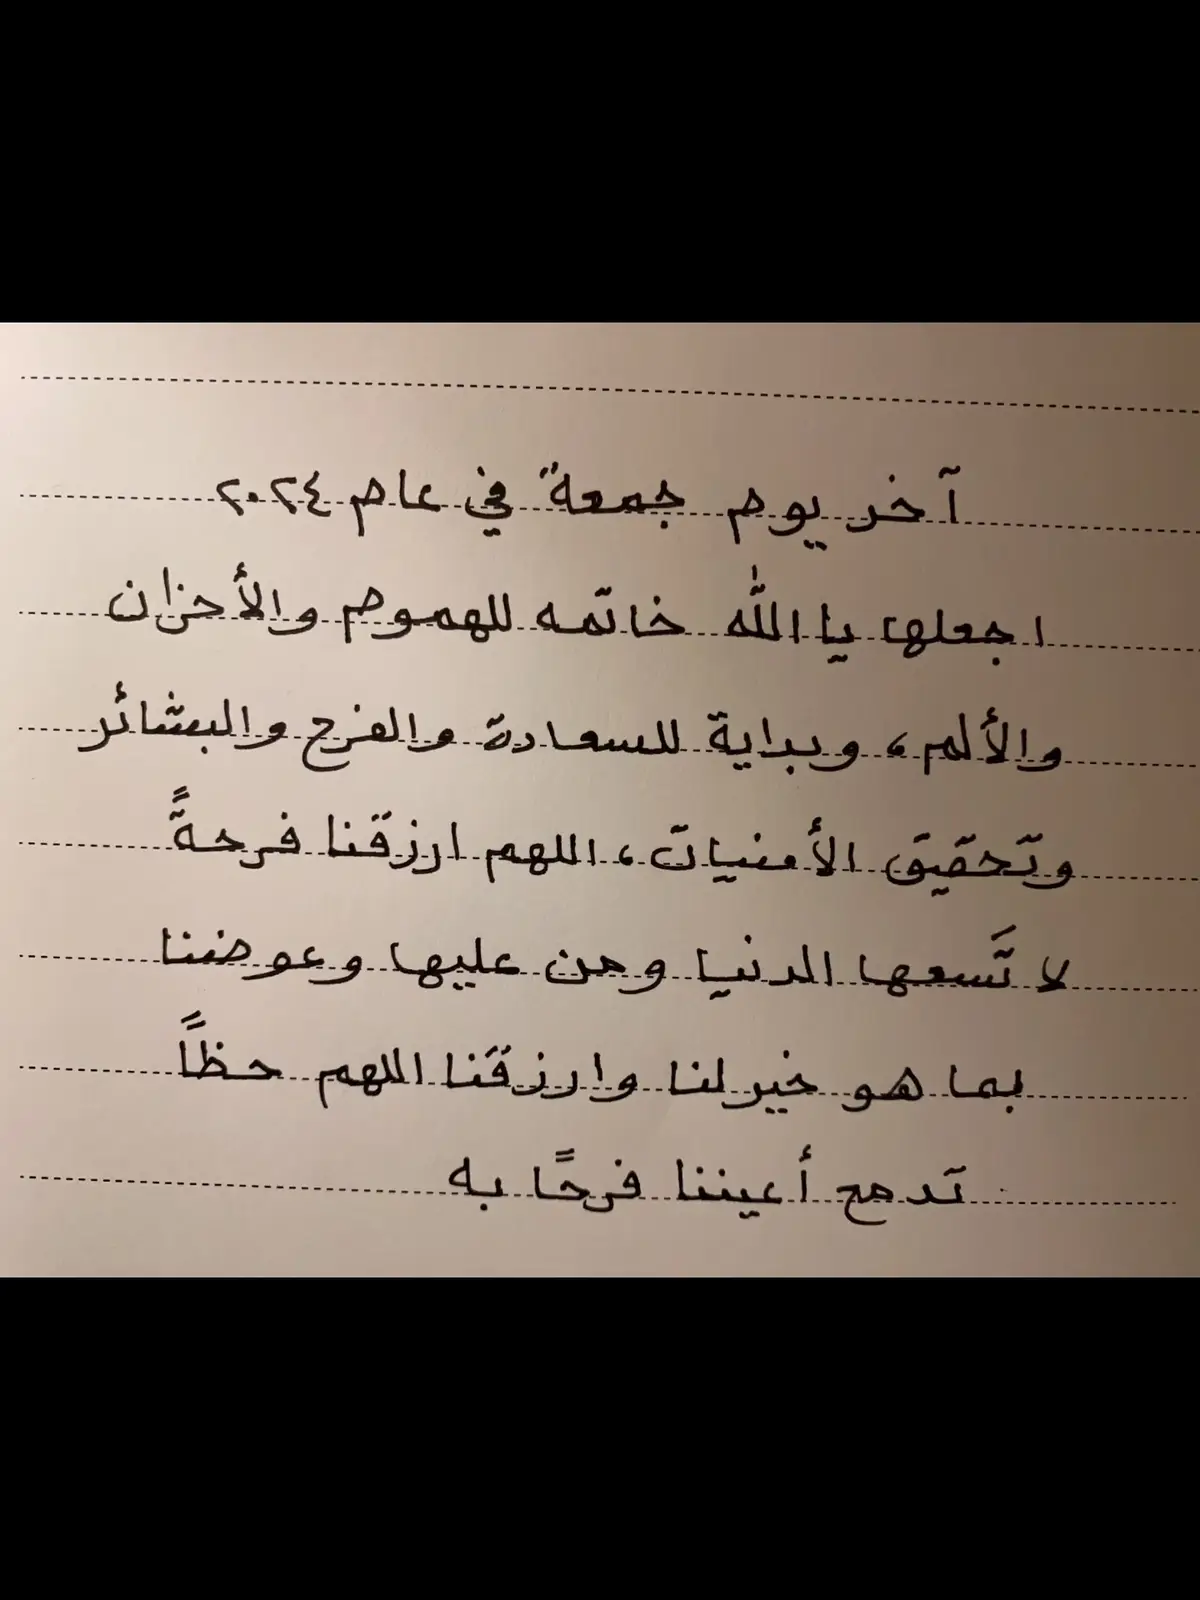 آخر يوم جمعة في عام ٢٠٢٤
اجعلها يا الله خاتمه للهموم والأحزان
والألم، وبداية للسعادة والفرح والبشائر
وتحقيق الأمنيات، اللهم ارزقنا فرحةً
لا تَسعها الدنيا ومن عليها وعوضنا
بما هو خير لنا وارزقنا اللهم حظاً
تدمع أعيننا فرحًا به